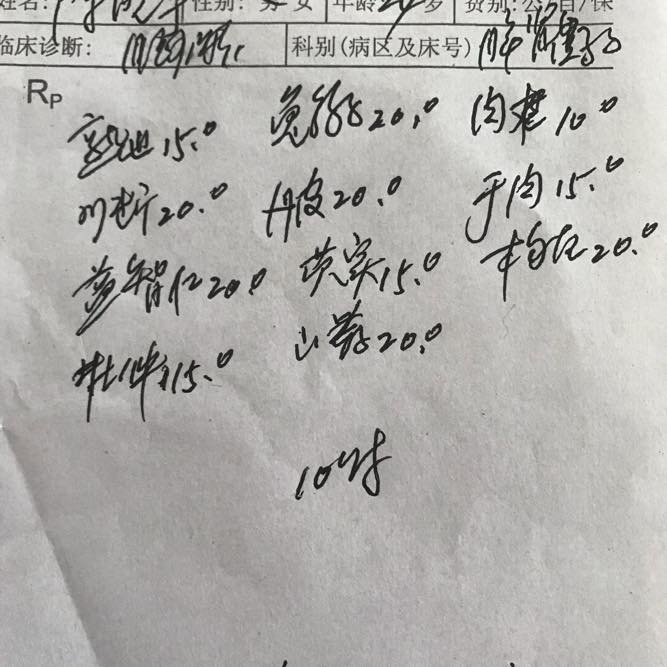 姓名: 性别: 男 女 年龄 24 岁 费别:公 自/保
临床诊断: 科别(病区及床号)
Rp
熟地15.0 菟丝子20.0 肉苁10.0
川断20.0 丹皮20.0 于肉15.0
益智仁20.0 芡实15.0 20.0
杜仲15.0 山药20.0
10付